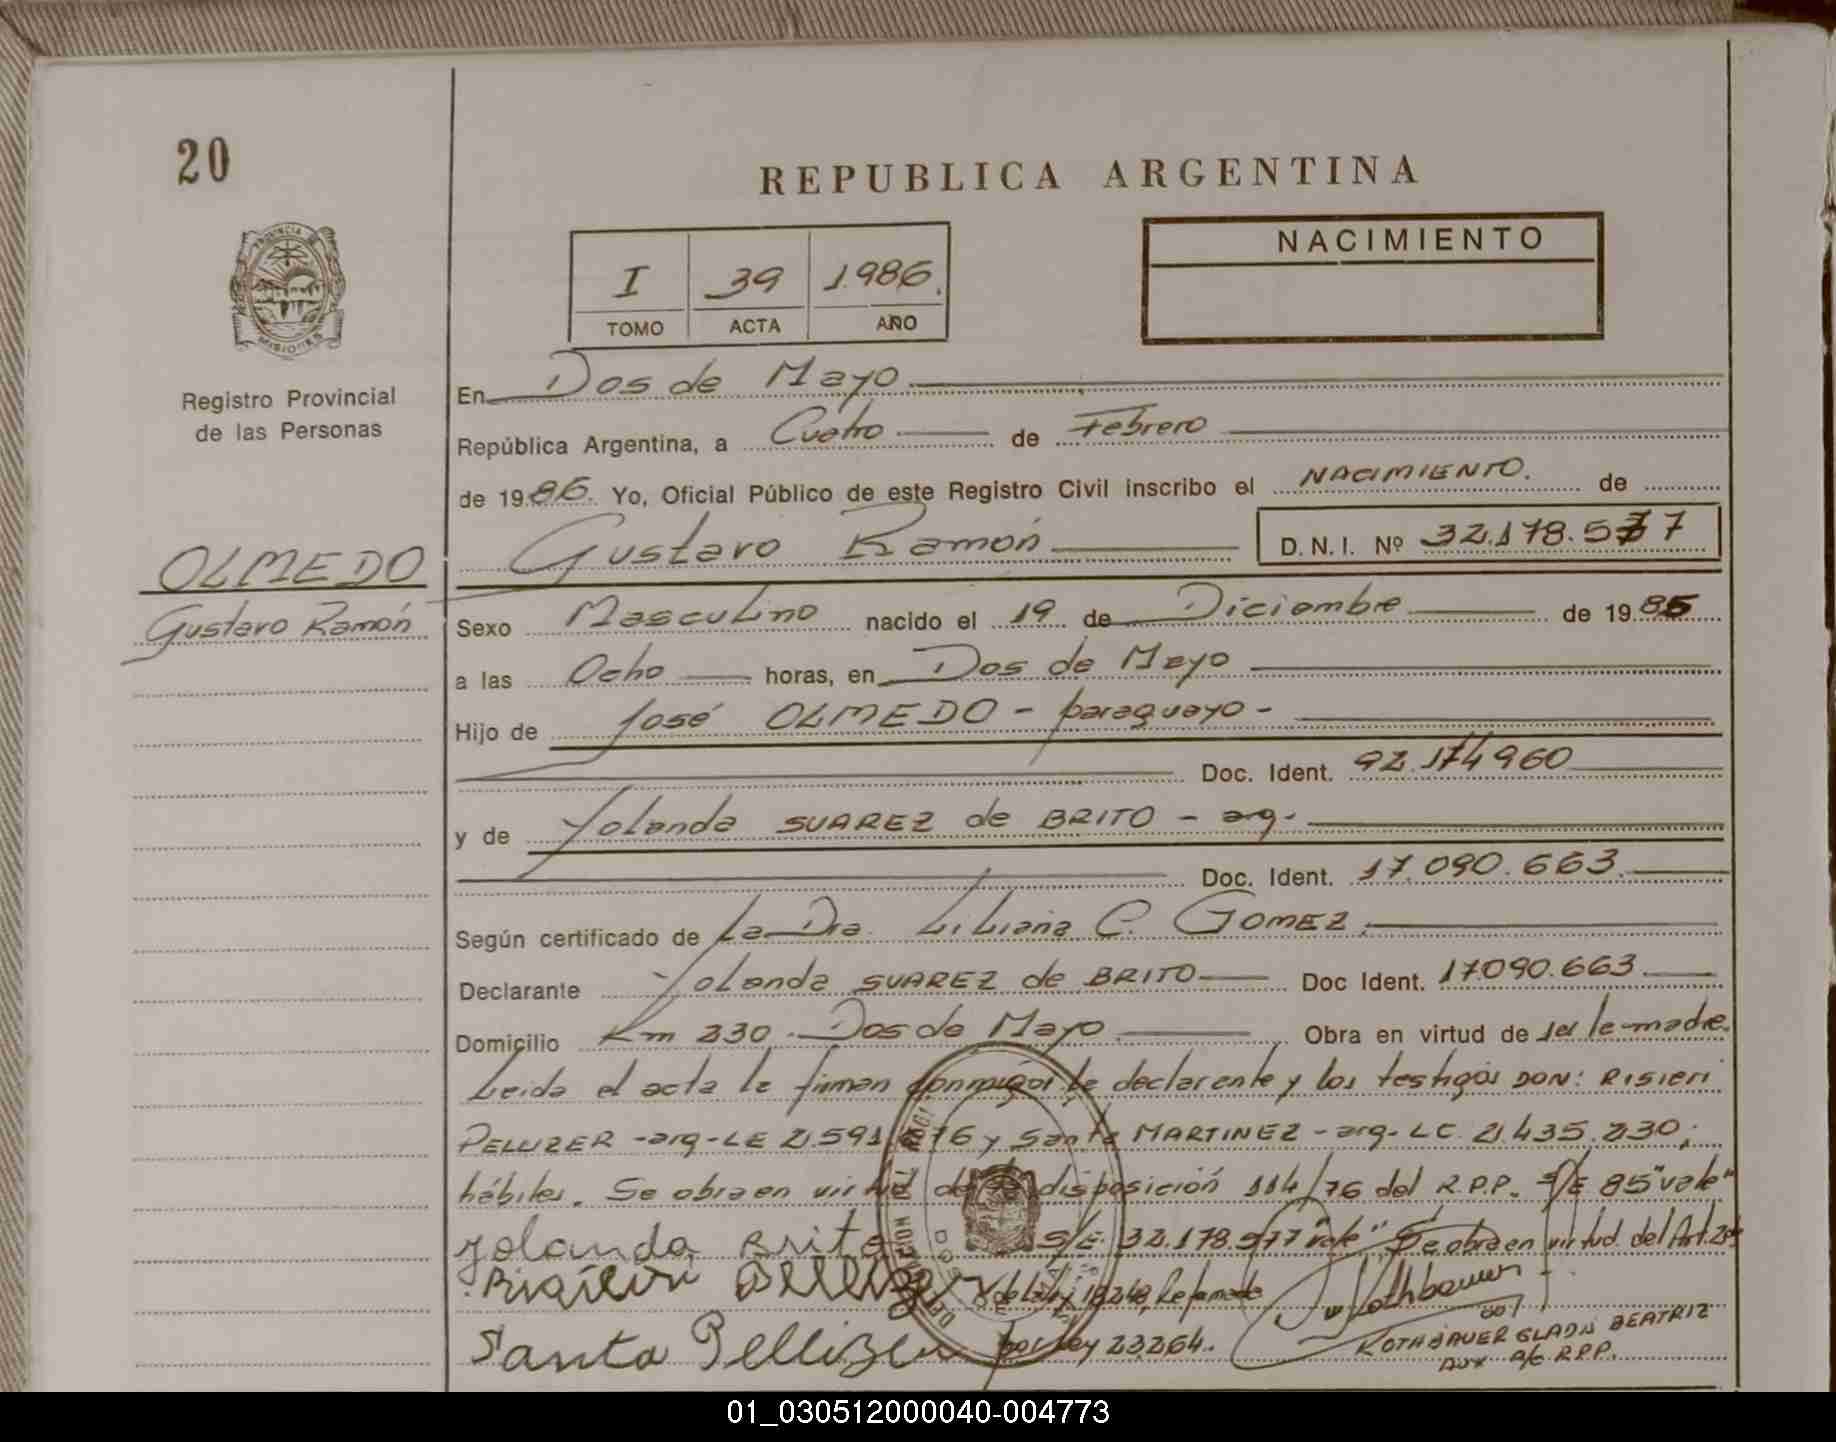 20
REPUBLICA ARGENTINA
PROVINCIA DE
MISIONES
I 39 1.986.
TOMO ACTA AÑO
NACIMIENTO
Registro Provincial
de las Personas
En Dos de Mayo
República Argentina, a Cuatro de Febrero
de 19 86. Yo, Oficial Público de este Registro Civil inscribo el NACIMIENTO. de
OLMEDO
Gustavo Ramón D.N.I. Nº 32.178.577
Gustavo Ramón
Sexo Masculino nacido el 19 de Diciembre de 19 85
a las Ocho horas, en Dos de Mayo
Hijo de José OLMEDO - paraguayo -
Doc. Ident. 92.174960
y de Yolanda SUAREZ de BRITO - arg.
Doc. Ident. 17.090.663.
Según certificado de La Dra. Liliana C. GOMEZ
Declarante Yolanda SUAREZ de BRITO Doc Ident. 17090.663
Domicilio Km 230. Dos de Mayo Obra en virtud de ser la madre.
Leida el acta la firman conmigo la declarante y los testigos DON: RISIERI
PELUZER -arg- LE 2.591. 76 y Santa MARTINEZ - arg- LC. 2.435.230;
hábiles. Se obra en virtud de la disposición 114/76 del R.P.P. S/E 85 "vale"
Yolanda Brito S/E 32.178.577 "vale". Se obra en virtud del Art.
de Ley 18248, Reformada
Santa por Ley 23264.
ROTHBAUER GLADYS BEATRIZ
AUX A/C R.P.P.
01_030512000040-004773